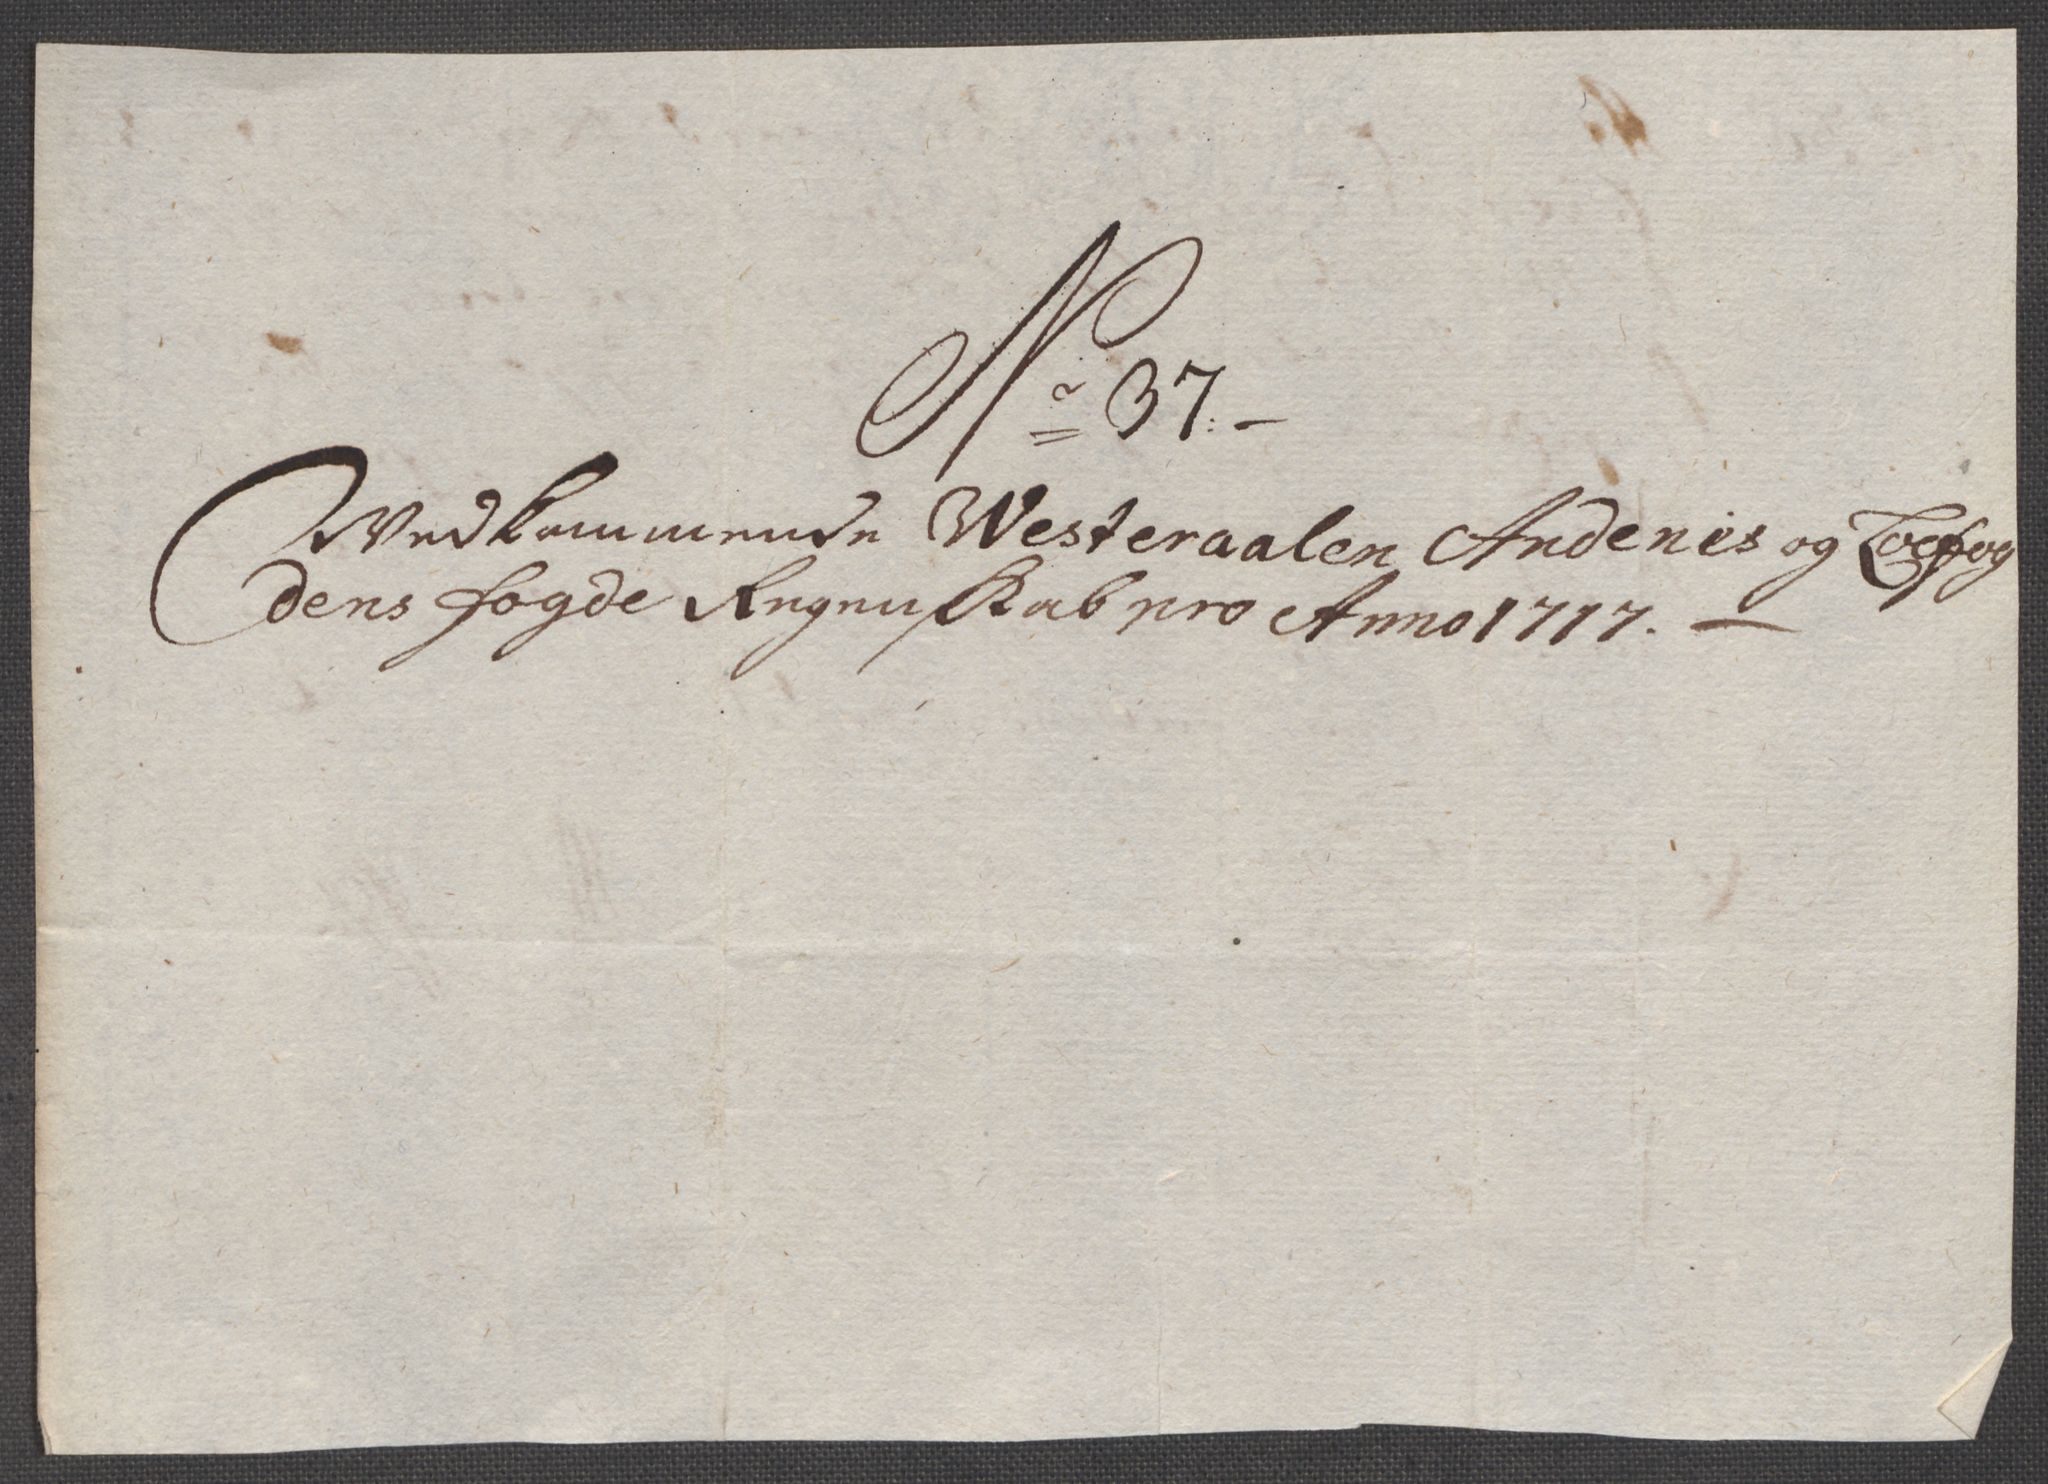 No 37.-
Vedkommende Westeraalen Andenis og Loefog
dens fogde Regnuskab pro Anno 1717.—